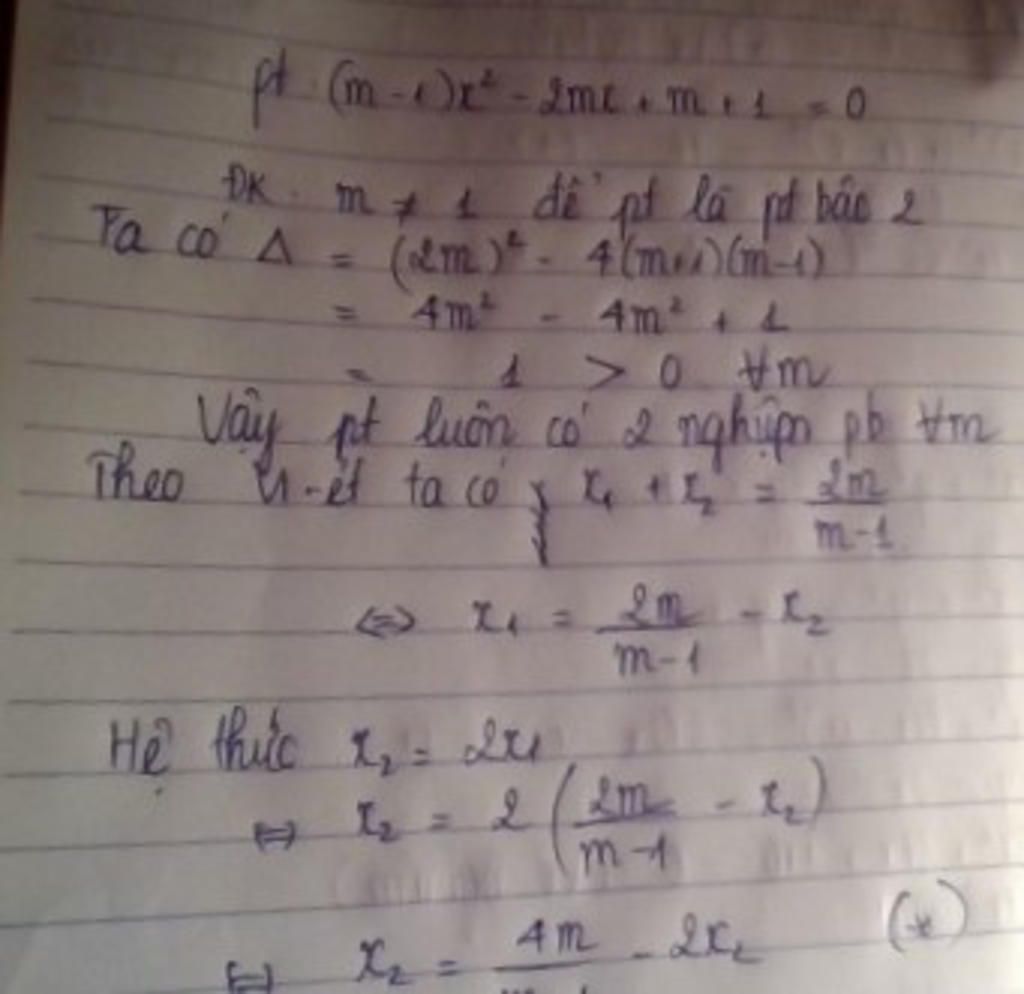 pt (m-1)x² - 2mx + m + 1 = 0
ĐK. m ≠ 1 để pt là pt bậc 2
Ta có Δ = (2m)² - 4(m+1)(m-1)
= 4m² - 4m² + 1
= 1 > 0 ∀m
Vậy pt luôn có 2 nghiệm pb ∀m
Theo Vi-ét ta có { x₁ + x₂ = 2m/(m-1)
⇔ x₁ = 2m/(m-1) - x₂
Hệ thức x₂ = 2x₁
⇔ x₂ = 2(2m/(m-1) - x₂)
⇔ x₂ = 4m/ - 2x₂ (*)